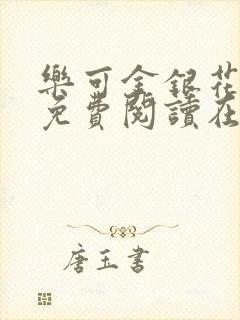 樂可金銀花
免費閱讀在
唐玉書